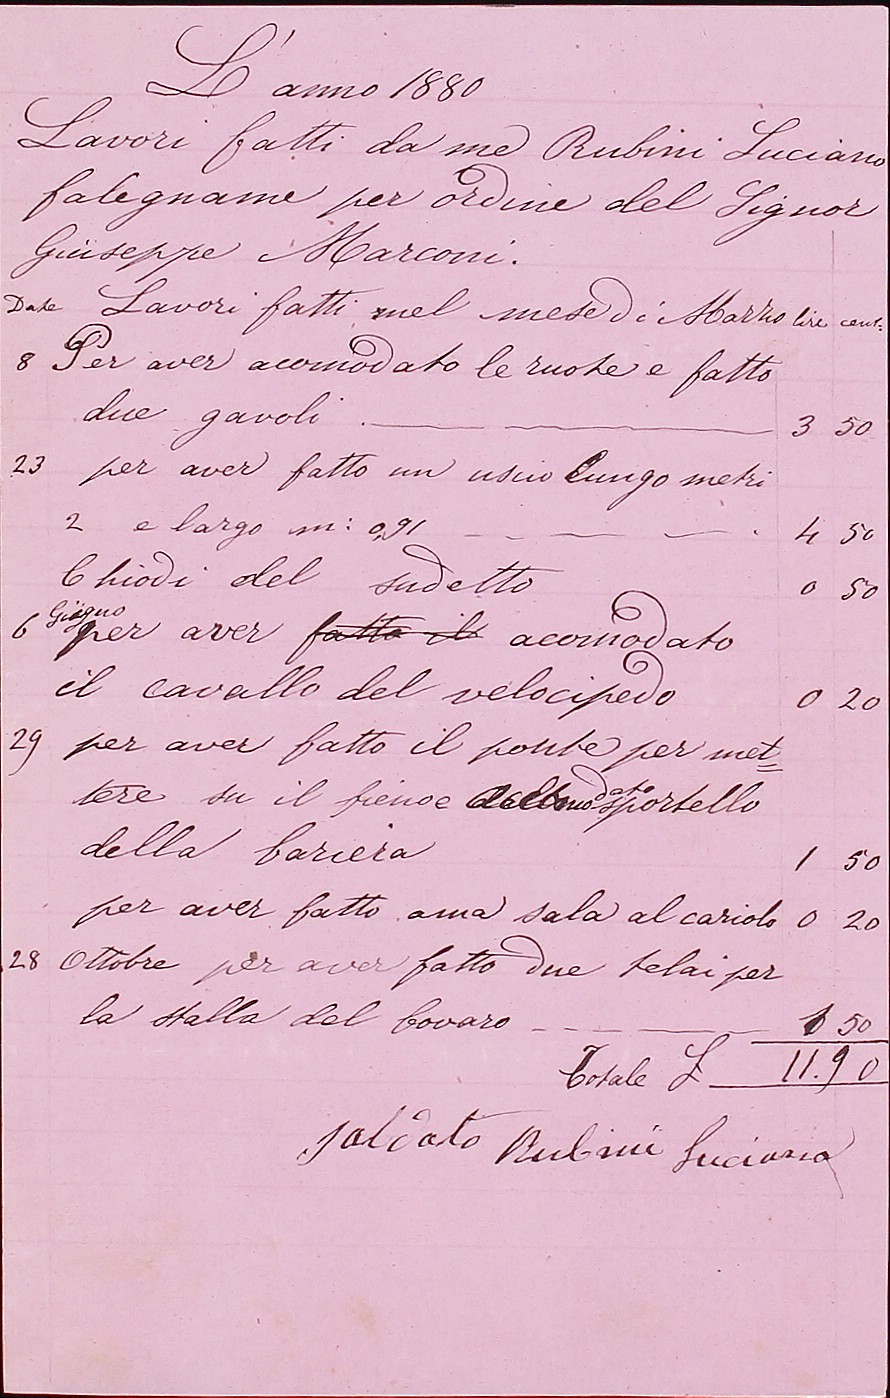 L'anno 1880
Lavori fatti da me Rubini Luciano
falegname per ordine del Signor
Giuseppe Marconi.
Date Lavori fatti nel mese di Marzo lire cent:
8 Per aver acomodato le ruote e fatto
due gavoli . 3 50
23 per aver fatto un uscio lungo metri
2 e largo m: 0,91 4 50
Chiodi del sudetto 0 50
6 Giugno per aver fatto il acomodato
il cavallo del velocipedo 0 20
29 per aver fatto il ponte per met=
tere su il fieno e sportello
della bariera 1 50
per aver fatto una sala al cariolo 0 20
28 Ottobre per aver fatto due telai per
la stalla del bovaro 1 50
Totale L 11.90
saldato Rubini Luciano